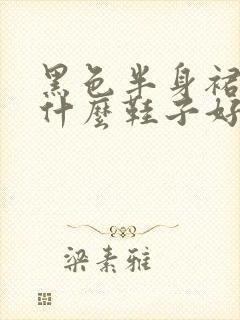 黑色半身裙
什麼鞋子好
梁素雅